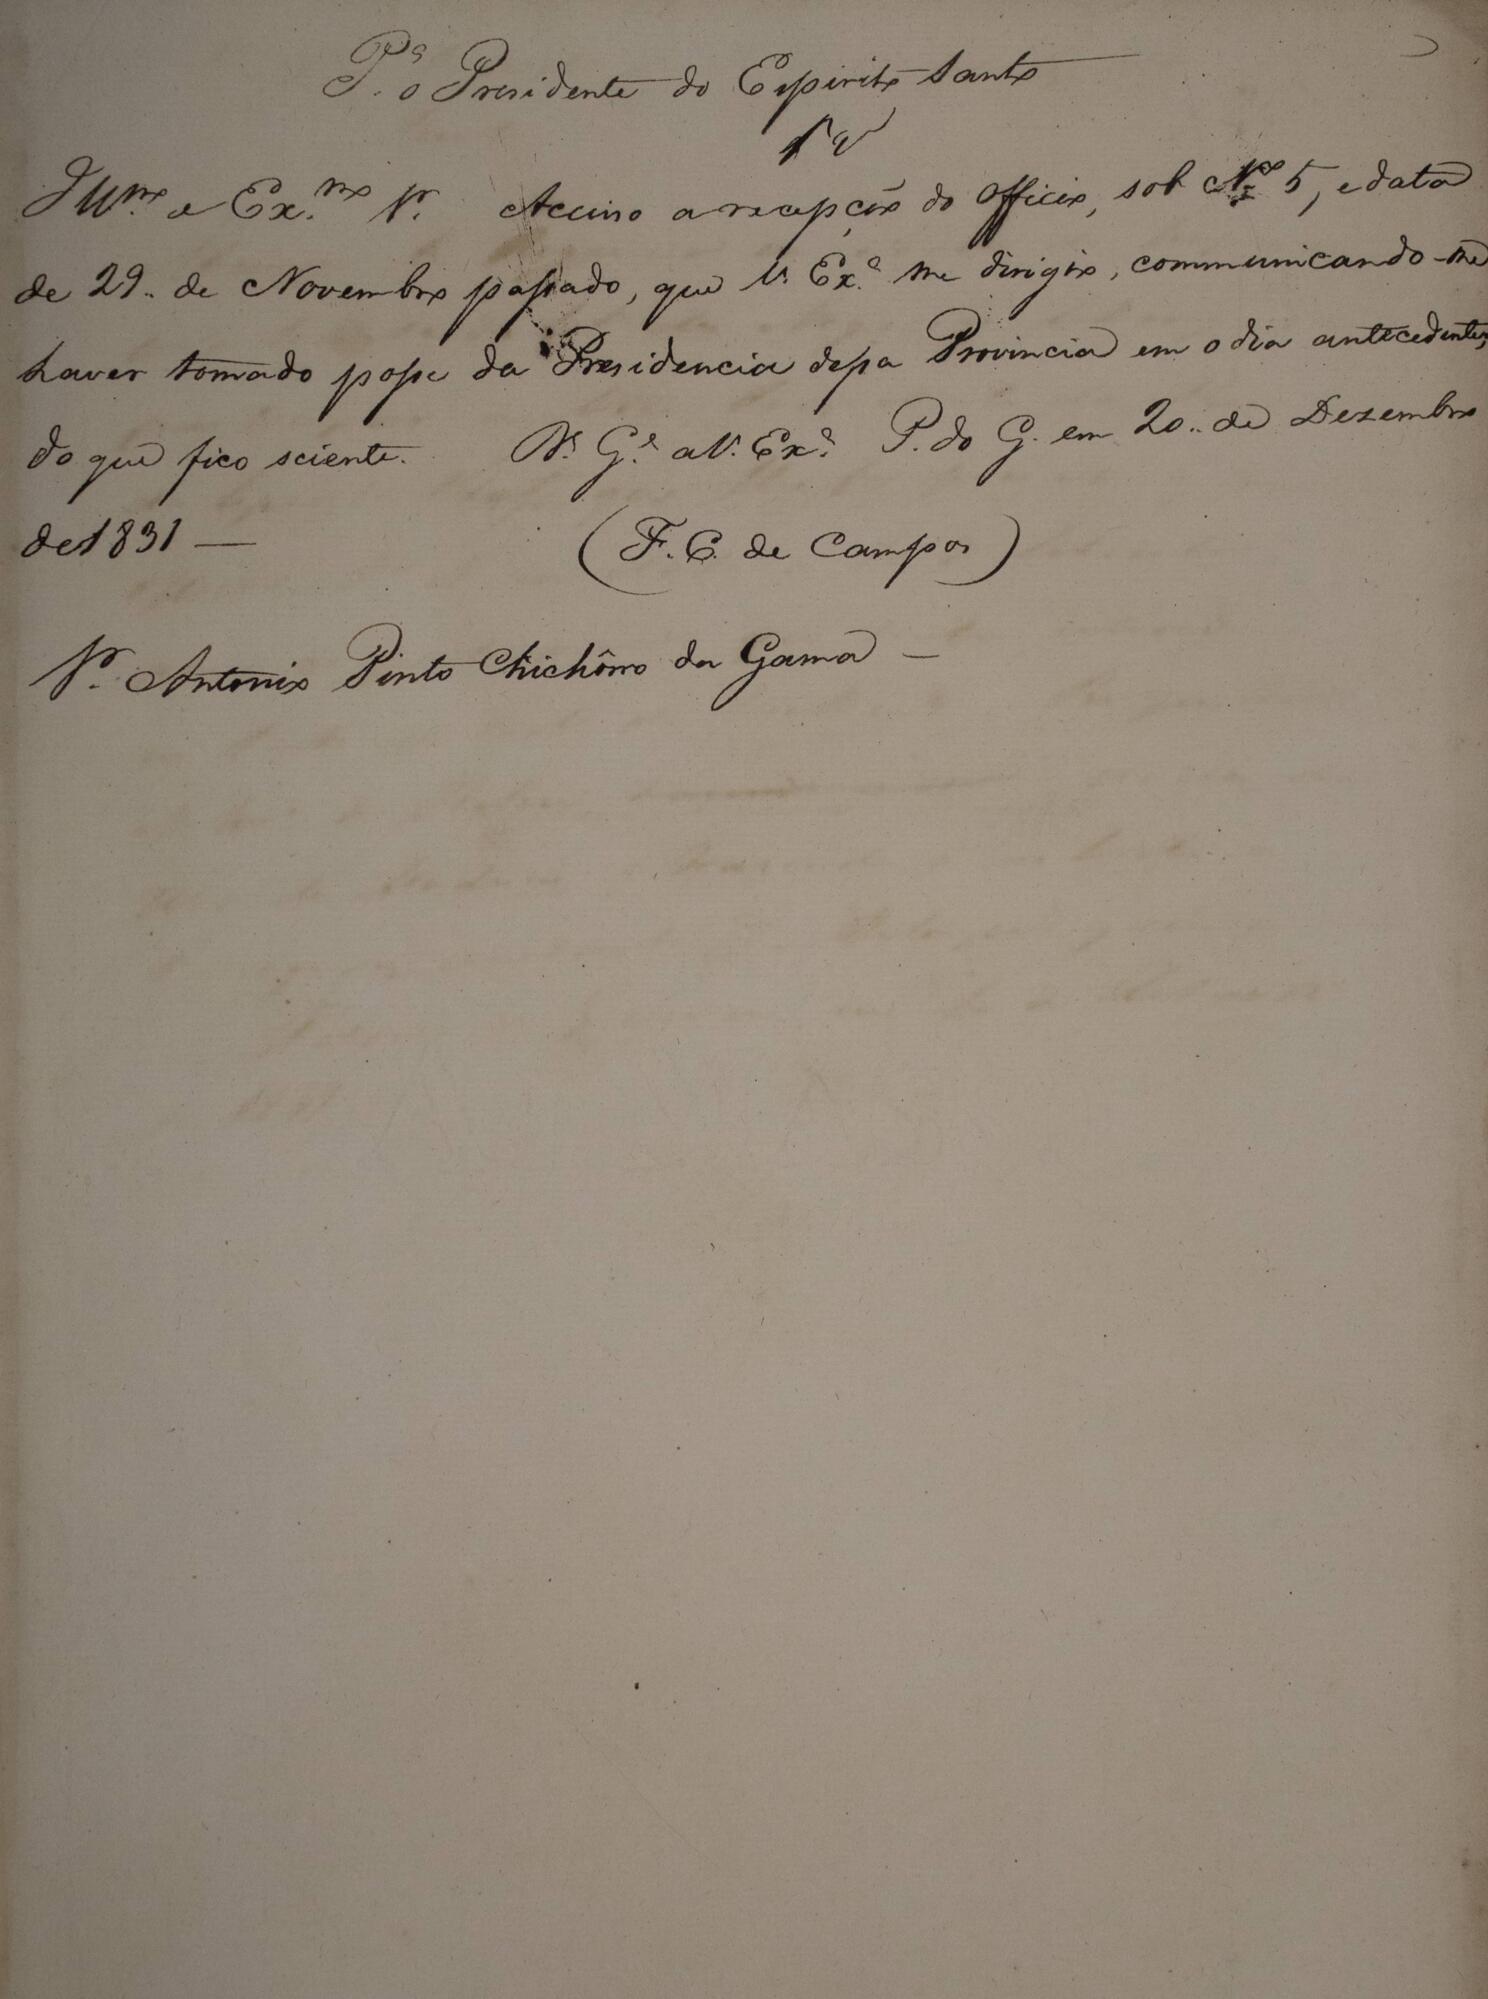 P.ª o Presidente do Espirito Santo
Ill.mo e Ex.mo Sr. Accuso a recepção do Officio, sob Nº 5, e data
de 29 de Novembro passado, que V. Ex.ª me dirigio, communicando-me
haver tomado posse da Presidencia dessa Provincia em o dia antecedente,
do que fico sciente. D.s G.e a V. Ex.ª P. do G. em 20 de Dezembro
de 1831 —
(F. C. de Campos)
Sr. Antonio Pinto Chichôrro da Gama —